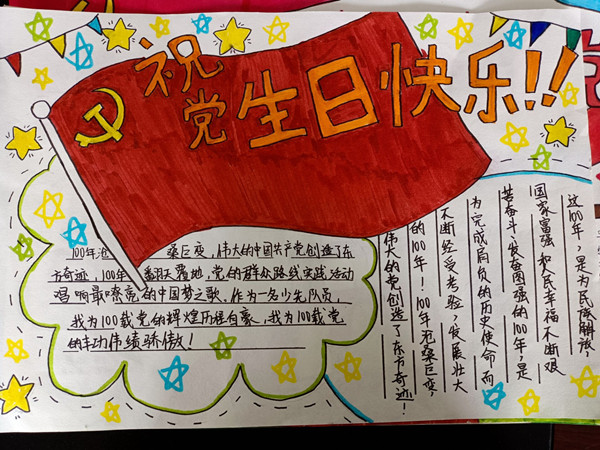 祝党生日快乐!!
100年沧桑巨变，伟大的中国共产党创造了东
方奇迹，100年翻天覆地，党的群众路线实践活动
唱响最嘹亮的中国梦之歌。作为一名少先队员，
我为100载党的辉煌历程自豪，我为100载党
的丰功伟绩骄傲！
这100年，是为民族解放，
国家富强和人民幸福不断艰
苦奋斗、发奋图强的100年；是
为完成肩负的历史使命而
不断经受考验，发展壮大
的100年！100年沧桑巨变，
伟大的党创造了东方奇迹！